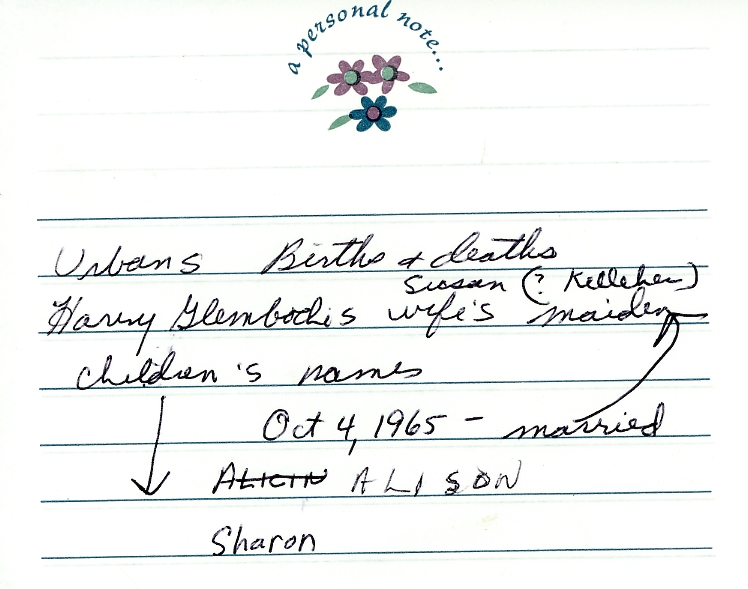 a personal note...
Urbans Births & deaths
Susan (? Kelleher)
Harry Glembockis wife's maiden
children's names
Oct 4, 1965 - married
ALICIN ALISON
Sharon